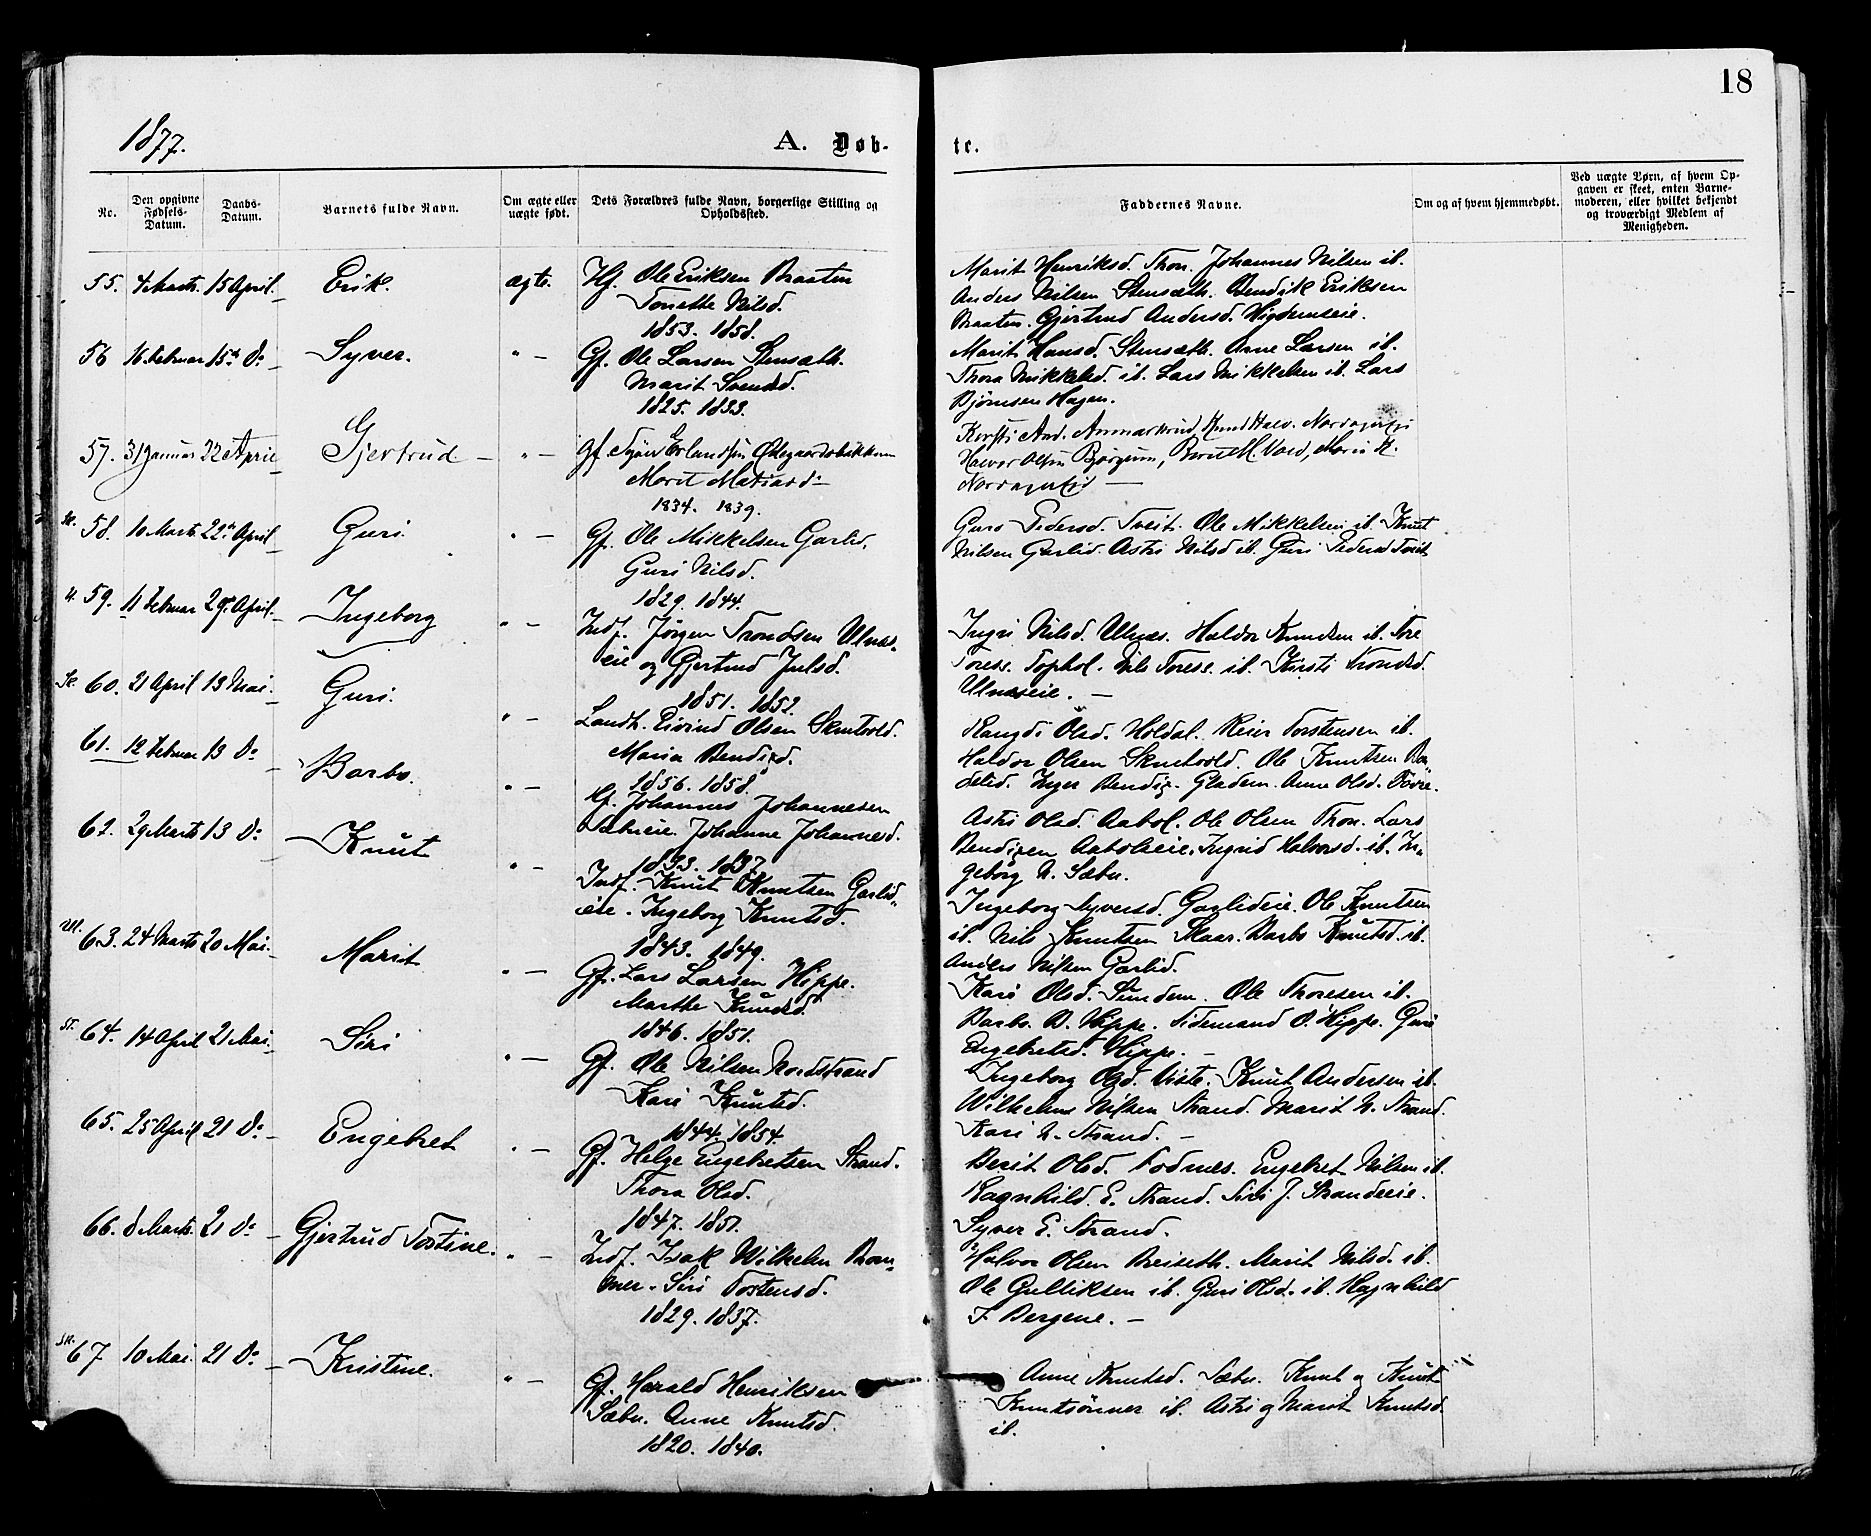 18
1877.
A. Døb-
te.
No.
Den opgivne Fødsels-Datum.
Daabs-Datum.
Barnets fulde Navn.
Om ægte eller uægte født.
Dets Forældres fulde Navn, borgerlige Stilling og Opholdssted.
Faddernes Navne.
Om og af hvem hjemmedøbt.
Ved uægte Børn, af hvem Op-
gaven er skeet, enten Barne-
moderen, eller hvilket bekjendt
og troværdigt Medlem af
Menigheden.
55. 4 Marts. 15 April. Erik. ægte. Hf. Ole Eriksen Braaten
Tonette Nilsd.
1853. 1858.
Marit Henriksd. Thon. Johannes Nilsen ib.
Anders Nilsen Stensæth. Bendik Eriksen
Braaten. Gjertrud Andersd.
56 16 Februar 15de Do Syver. " — Gf. Ole Larsen Stensæth.
Marit Svendsd.
1825. 1833.
Marit Hansd. Stensæth. Arne Larsen ib.
Thora Mikkelsd. ib. Lars Mikkelsen ib. Lars
Bjørnsen Hagen.
57. 31 Januar 22 April Gjertrud — " — Gf.
Marit
1834. 1839.
Halvor Olsen
58. 10 Marts 22de April Guri. " — Gf. Ole Mikkelsen Garlid.
Guri Nilsd.
1829. 1844.
Guro Pedersd. Tveit. Ole Mikkelsen ib. Knut
Nilsen Garlid. Astri Nilsd ib. Guri Pedersd Tveit
59. 11 Februar 29de April. Ingeborg " — Indf. Jørgen Trondsen Ulnæs-
eie og Gjertrud Julsd.
1851. 1852.
Ingri Nilsd. Ulnæs. Haldor Knudsen ib. Tore
Toress. Tophol. Nils Toress. ib. Kirsti Trondsd.
Ulnæseie. —
60. 21 April 13 Mai. Guri. " — Landh. Eivind Olsen Skutvold.
Maria Bendixd.
1856. 1858.
Rangdi Olsd. Høldal. Reier Torstensen ib.
Haldor Olsen Skutvold. Ole Knutsen
61. 12 Februar 13 Do Barbo. " — Hf. Johannes Johannesen
Sæbueie. Johanne Johannesd.
1833. 1837.
Inger Bendix. Gladem. Anne Olsd.
62. 29 Marts 13 Do Knut " — Indf. Knut Knutsen Garlid-
eie. Ingeborg Knutsd.
1843. 1849.
Astri Olsd. Aabol. Ole Olsen Thon. Lars
Bendixen Aaboleie. Ingrid Halvorsd. ib. In-
geborg N. Sæbu.
Ingeborg Syversd. Garlideie. Ole Knutsen
ib. Nils Knutsen Skaar. Barbo Knutsd. ib.
Anders Nilsen Garlid.
63. 24 Marts 20 Mai. Marit " — Gf. Lars Larsen Hippe.
Marthe Knudsd.
1846. 1851.
Kari Olsd. Sundem. Ole Thoresen ib.
Barbo B. Hippe. Tidemand O. Hippe. Guri
Engebretsd. Hippe. —
64. 14 April 21 Mai. Siri " — Gf. Ole Nilsen Nordstrand
Kari Knutsd.
1844. 1854.
Ingeborg Olsd. Viste. Knut Andersen ib.
Wilhelm Nilsen Strand. Marit N. Strand.
Kari N. Strand. —
65. 25 April 21 Do Engebret " — Gf. Helge Engebretsen Strand.
Thora Olsd.
1847. 1851.
Berit Olsd. Fodnes. Engebret Nilsen ib.
Ragnhild. E. Strand. Siri J. Strandeie.
Syver E. Strand.
66. 8 Marts. 21 Do Gjertrud Tostine. " — Indf. Isak Wilhelm
Siri Tostensd.
1829. 1837.
Halvor Olsen Breiseth. Marit Nilsd. ib.
Ole Gulliksen ib. Guri Olsd. ib. Ragnhild
Bergene. —
67 10 Mai. 21 Do Kristine. " — Gf. Harald Henriksen
Sæbu. Anne Knutsd.
1820. 1840.
Anne Knutsd. Sæbu. Knut og Knut
Knutsønner ib. Astri og Marit Knutsd
ib.